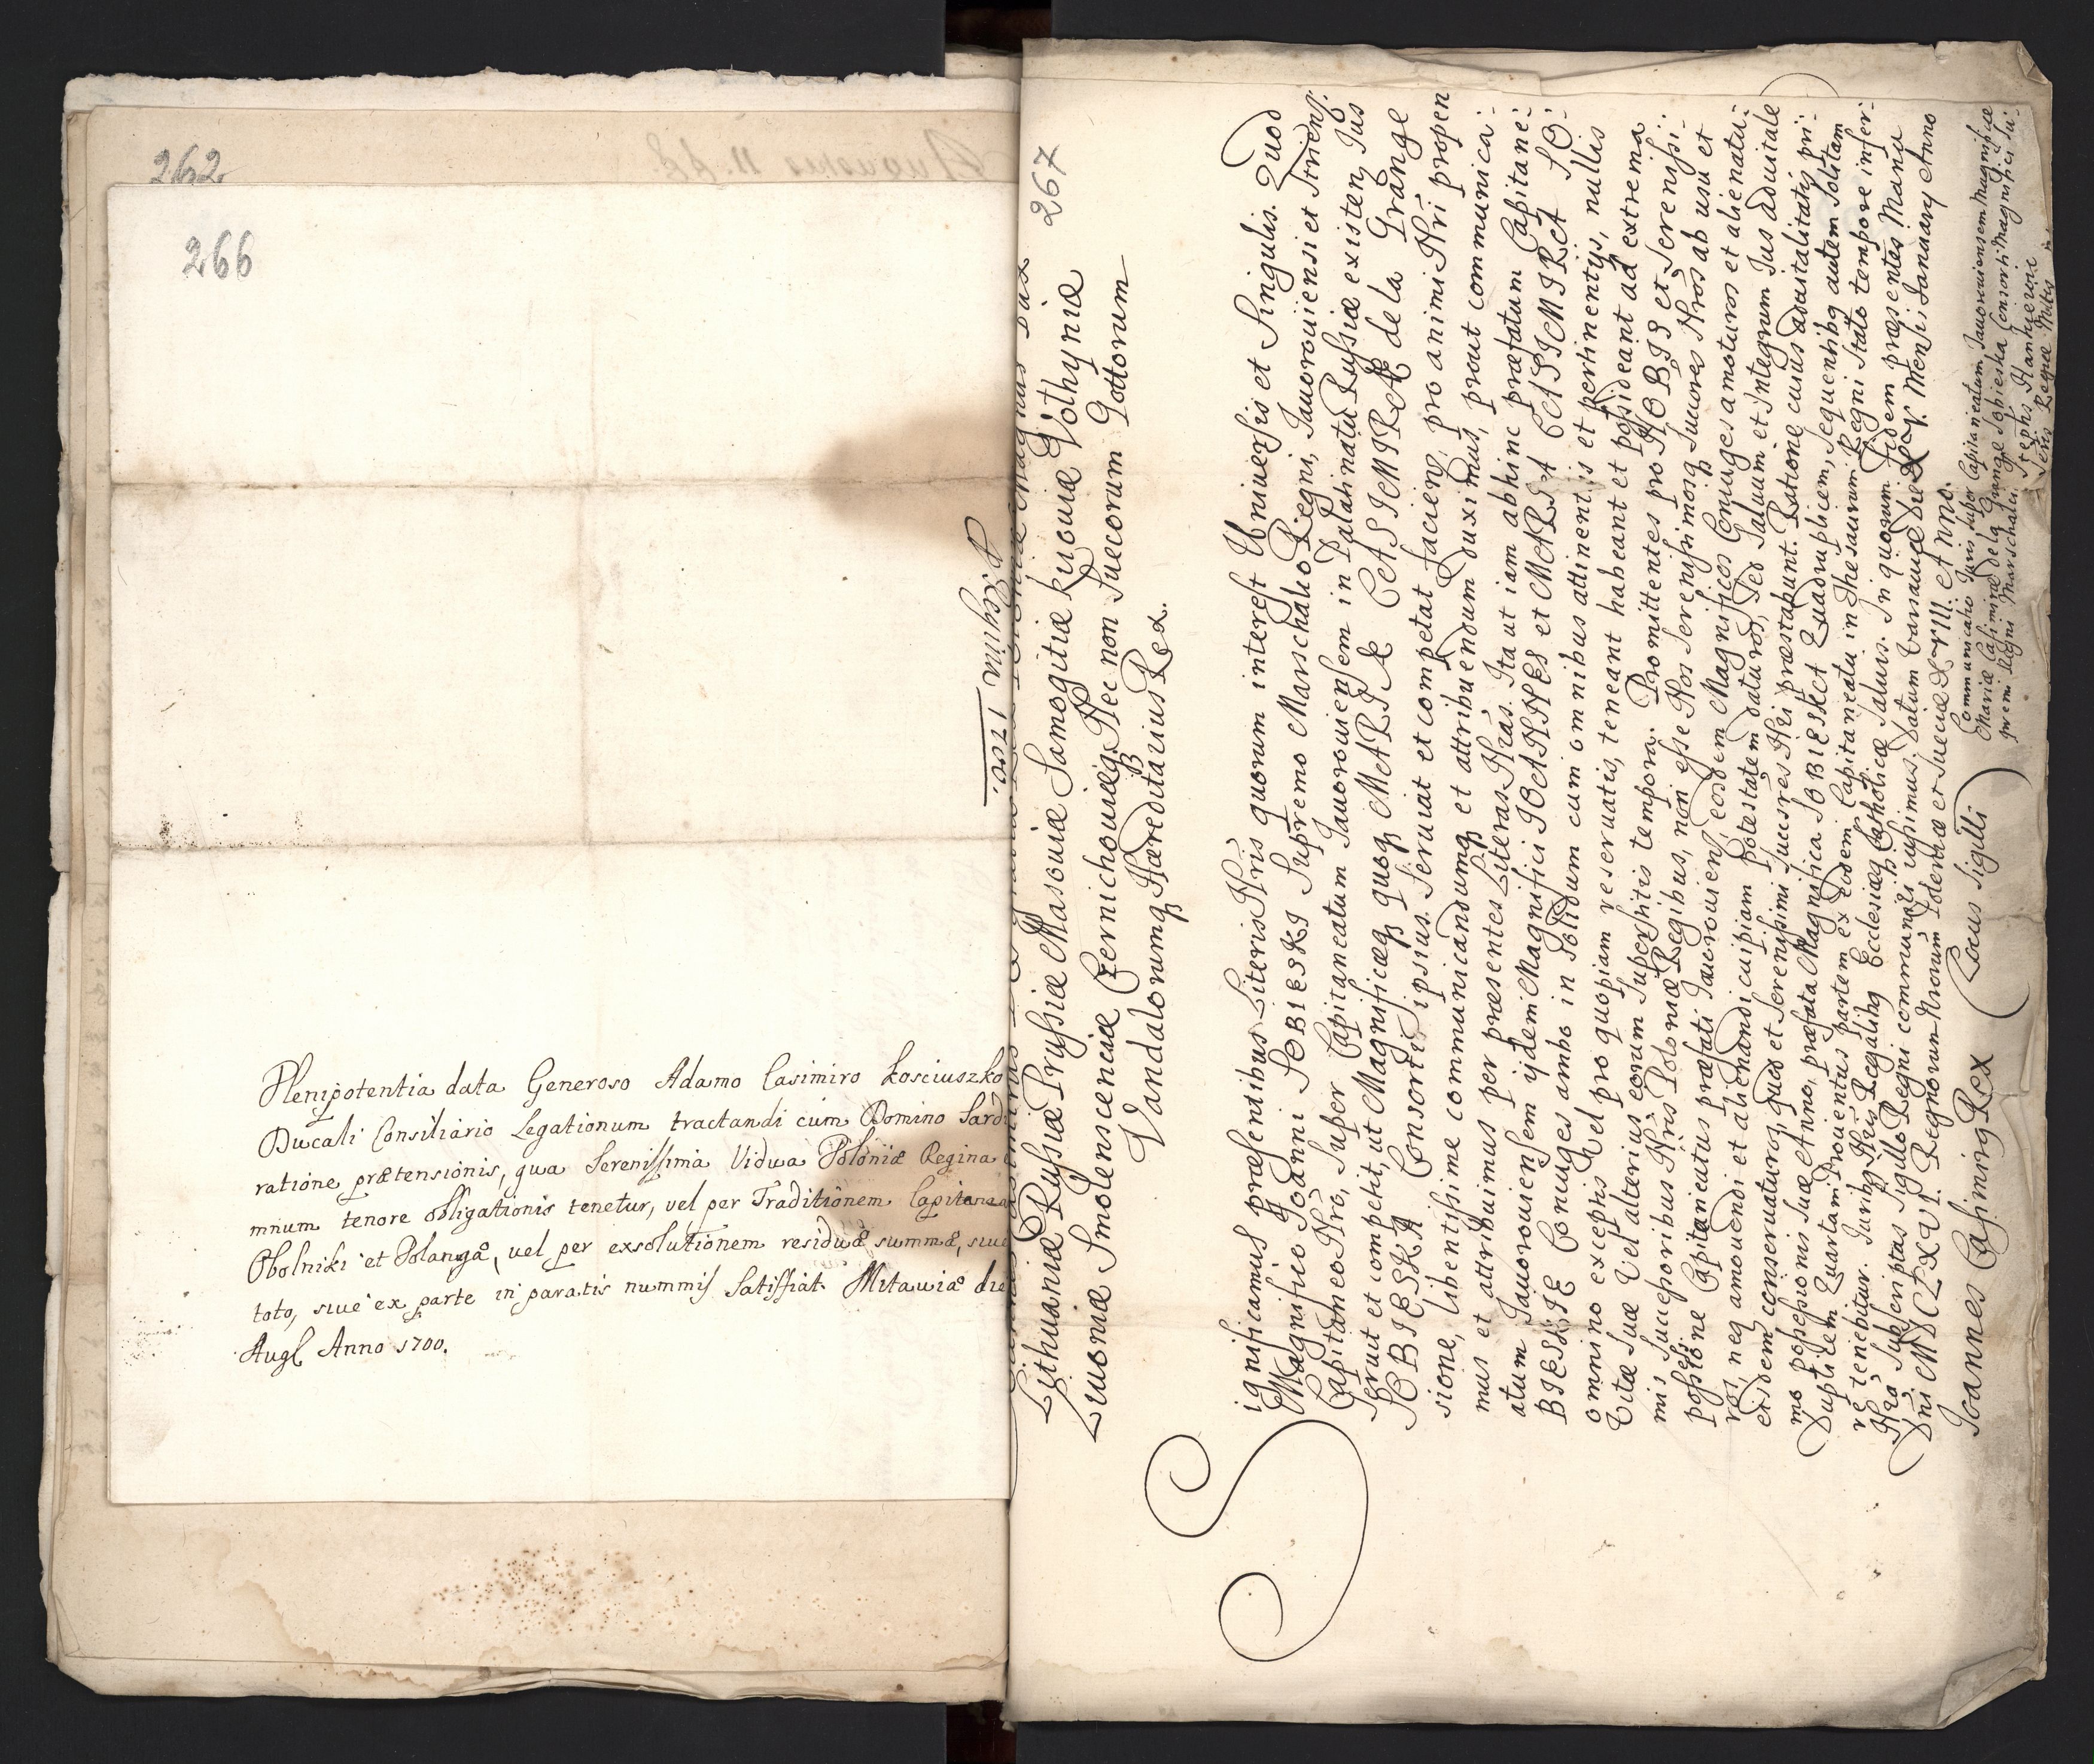 262
266
Plenipotentia data Generoso Adamo Casimiro Kosciuszko
Ducali Consiliario Legationum tractandi cum Domino Sard
ratione prætensionis, qua Serenissima Vidua Poloniæ Regina
mnium tenore obligationis tenetur, vel per Traditionem Capitanea
Obolniki et Polangæ, vel per exsolutionem residuæ summæ, siue
toto, siue ex parte in paratis nummis satisfiat Mitaviæ die
Augl Anno 1700.
1700.
267
Lithuaniæ Russiæ Prussiæ Masouiæ Samogitiæ Kijouiæ Volhyniæ
Liuoniæ Smolensceneiæ Czernichouiæq Nec non Suecorum Gottorum
Vandalorumq Hæreditarius Rex.
Significamus præsentibus Literis Nris quorum interest Uniuersis et Singulis. Quod
Magnifico Joanni SOBIESKI Supremo Marschalco Regni, Jauorouiensi et Striens:
Capitaneo Nro, super Capitaneatum Jauorouiensem in Palatinatu Russiæ existen, Jus
seruit et competit, ut Magnificæq quoq MARIÆ CASIMIRÆ de la Grange
SOBIESKA Consorti ipsius seruiat et competat facien, pro animi Nri propen
sione, libentissime communicandumq et attribuendum duximus, prout communica:
mus et attribuimus per præsentes Literas Nras. Ita ut iam abhinc præfatum Capitane:
atum Jauorouiensem ijdem Magnifici JOANNES et MARIA CASIMIRA SO:
BIESKIE Coniuges ambo in solidum cum omnibus attinentijs et pertinentijs, nullis
omnino exceptis vel pro quopiam reseruatis, teneant habeant et possideant ad extrema
Vitæ suæ vel alterius eorum superstitis tempora. Promittentes pro NOBIS et Serenissi:
mis Successoribus Nris Poloniæ Regibus, non esse Nos Serenissimosq Succres Nros ab usu et
possessione Capitaneatus præfati Jauorouien, eosdem Magnificos Coniuges amoturos et alienatu:
ros, neq amouendi et alienandi cuipiam potestatem daturos, sed saluum et integrum Jus aduitale
eisdem conseruaturos, quod et Serenissimi Succres Nri præstabunt. Ratione cuius aduitalitatis pri:
mo possessionis suæ Anno, præfata Magnifica SOBIESKA Quadruplicem, sequentibq autem solitam
Duplicem Quartam Prouentus partem ex eodem Capitaneatu in Thesaurum Regni stato tempore infer:
re tenebitur. Juribq Nris Regalibq Ecclesiæq Catholicæ saluis. In quorum fidem præsentes Manu
Nra subscriptas Sigillo Regni communiri iussimus. Datum Varsauiæ die XV. Mensis Januarij Anno
Dni MDCLXVI. Regnorum Nrorum Poloniæ et Sueciæ XVIII. Anno.
Joannes Casimirq Rex
Locus Sigilli
Communicatio Juris super Capitaneatum Jauorouiensem Magnificæ
Mariæ Casimiræ de la Grange Sobieska Consorti Magnifici Su:
premi Regni Marschalci.